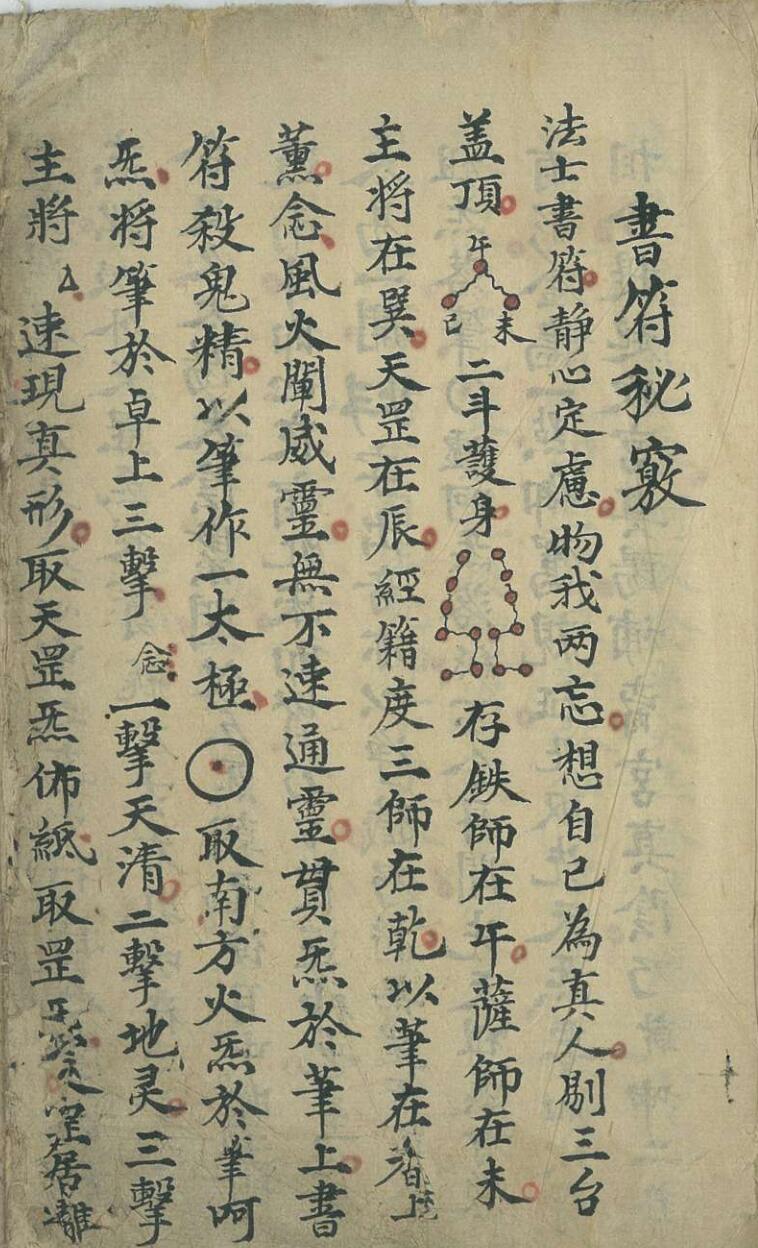 書符秘竅
法士書符静心定慮物我两忘想自己為真人剔三台
盖頂 午 己 未 二斗護身 存鉄師在午薩師在未
主将在巽天罡在辰經籍度三師在乾以筆在香上
薰念風火闡威靈無不速通靈貫炁於筆上書
符殺鬼精以筆作一太極 取南方火炁於筆呵
炁将筆於卓上三擊 念 一擊天清二擊地灵三擊
主将厶速現真形取天罡炁佈紙取罡炁 居離